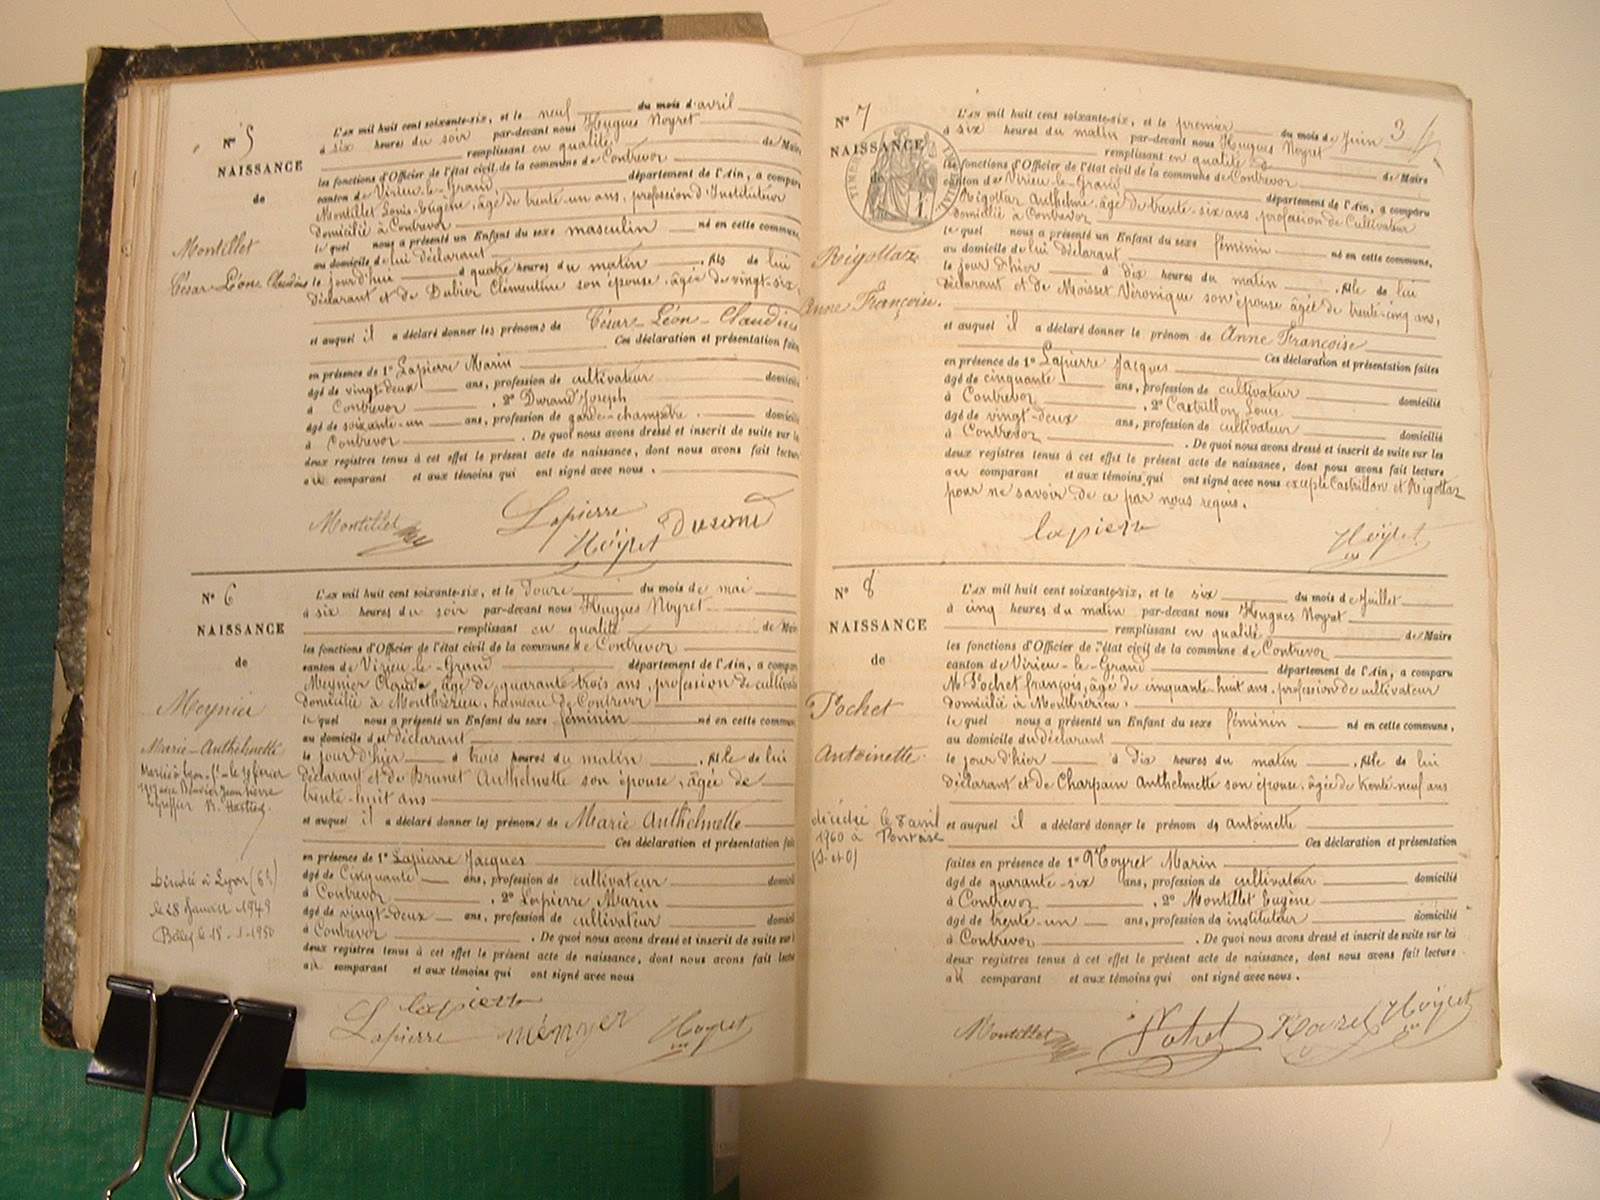 N° 5
NAISSANCE
de
Montillet
César Léon Claudius
L'AN mil huit cent soixante-six, et le neuf du mois d'avril
à six heures du soir par-devant nous Hugues Noyret
remplissant en qualité de Maire
les fonctions d'Officier de l'état civil de la commune de Contrevoz
canton de Virieu-le-Grand département de l'Ain, a comparu
Montillet Louis-Eugène, âgé de trente-un ans, profession d'Instituteur
domicilié à Contrevoz
le quel nous a présenté un Enfant du sexe masculin né en cette commune,
au domicile de lui déclarant
le jourd'hui à quatre heures du matin, fils de lui
déclarant et de Dubier Clémentine son épouse, âgée de vingt-six
et auquel il a déclaré donner les prénoms de César-Léon-Claudius
Ces déclaration et présentation faites
en présence de 1° Lapierre Marin
âgé de vingt-deux ans, profession de cultivateur domicilié
à Contrevoz, 2° Durand Joseph
âgé de soixante-un ans, profession de garde-champêtre domicilié
à Contrevoz. De quoi nous avons dressé et inscrit de suite sur les
deux registres tenus à cet effet le présent acte de naissance, dont nous avons fait lecture
au comparant et aux témoins qui ont signé avec nous.
Montillet Lapierre Durand
Noyret
N° 6
NAISSANCE
de
Meynier
Marie-Anthelmette
Décédée à Lyon (6e)
le 28 Janvier 1949
Belley le 18-1-1950
L'AN mil huit cent soixante-six, et le douze du mois de mai
à six heures du soir par-devant nous Hugues Noyret
remplissant en qualité de Maire
les fonctions d'Officier de l'état civil de la commune de Contrevoz
canton de Virieu-le-Grand département de l'Ain, a comparu
Meynier Claude, âgé de quarante-trois ans, profession de cultivateur
domicilié à Montbrérieu, hameau de Contrevoz
le quel nous a présenté un Enfant du sexe féminin né en cette commune
au domicile du déclarant
le jour d'hier à trois heures du matin, fille de lui
déclarant et de Brunet Anthelmette son épouse, âgée de
trente-huit ans
et auquel il a déclaré donner les prénoms de Marie Anthelmette
Ces déclaration et présentation faites
en présence de 1° Lapierre Jacques
âgé de Cinquante ans, profession de cultivateur domicilié
à Contrevoz, 2° Lapierre Marin
âgé de vingt-deux ans, profession de cultivateur domicilié
à Contrevoz. De quoi nous avons dressé et inscrit de suite sur les
deux registres tenus à cet effet le présent acte de naissance, dont nous avons fait lecture
au comparant et aux témoins qui ont signé avec nous
lapierre
Lapierre ménnier Noyret
3
N° 7
NAISSANCE
de
Rigottaz
Anne Françoise.
L'AN mil huit cent soixante-six, et le premier du mois de Juin
à six heures du matin par-devant nous Hugues Noyret
remplissant en qualité de Maire
les fonctions d'Officier de l'état civil de la commune de Contrevoz
canton de Virieu-le-Grand département de l'Ain, a comparu
Rigottaz Anthelme, âgé de trente-six ans, profession de Cultivateur
domicilié à Contrevoz
le quel nous a présenté un Enfant du sexe féminin né en cette commune,
au domicile de lui déclarant
le jour d'hier à dix heures du matin, fille de lui
déclarant et de Moisset Véronique son épouse âgée de trente-cinq ans,
et auquel il a déclaré donner le prénom de Anne Françoise
Ces déclaration et présentation faites
en présence de 1° Lapierre Jacques
âgé de cinquante ans, profession de cultivateur domicilié
à Contrevoz, 2° Castrillon Louis
âgé de vingt-deux ans, profession de cultivateur domicilié
à Contrevoz. De quoi nous avons dressé et inscrit de suite sur les
deux registres tenus à cet effet le présent acte de naissance, dont nous avons fait lecture
au comparant et aux témoins qui ont signé avec nous excepté Castrillon et Rigottaz
pour ne savoir de ce par nous requis.
lapierre Noyret
N° 8
NAISSANCE
de
Pochet
Antoinette
décédée le 8 avril
1960 à Pontoise
(S. et O)
L'AN mil huit cent soixante-six, et le six du mois de Juillet
à cinq heures du matin par-devant nous Hugues Noyret
remplissant en qualité de Maire
les fonctions d'Officier de l'état civil de la commune de Contrevoz
canton de Virieu-le-Grand département de l'Ain, a comparu
M. Pochet françois, âgé de cinquante-huit ans, profession de cultivateur
domicilié à Montbrérieu.
le quel nous a présenté un Enfant du sexe féminin né en cette commune,
au domicile du déclarant
le jour d'hier à dix heures du matin, fille de lui
déclarant et de Charpain Anthelmette son épouse, âgée de trente-neuf ans
et auquel il a déclaré donner le prénom de Antoinette
Ces déclaration et présentation
faites en présence de 1° Noyret Marin
âgé de quarante-six ans, profession de cultivateur domicilié
à Contrevoz, 2° Montillet Eugène
âgé de trente-un ans, profession de instituteur domicilié
à Contrevoz. De quoi nous avons dressé et inscrit de suite sur les
deux registres tenus à cet effet le présent acte de naissance, dont nous avons fait lecture
au comparant et aux témoins qui ont signé avec nous.
Montillet Pochet Noyret Noyret